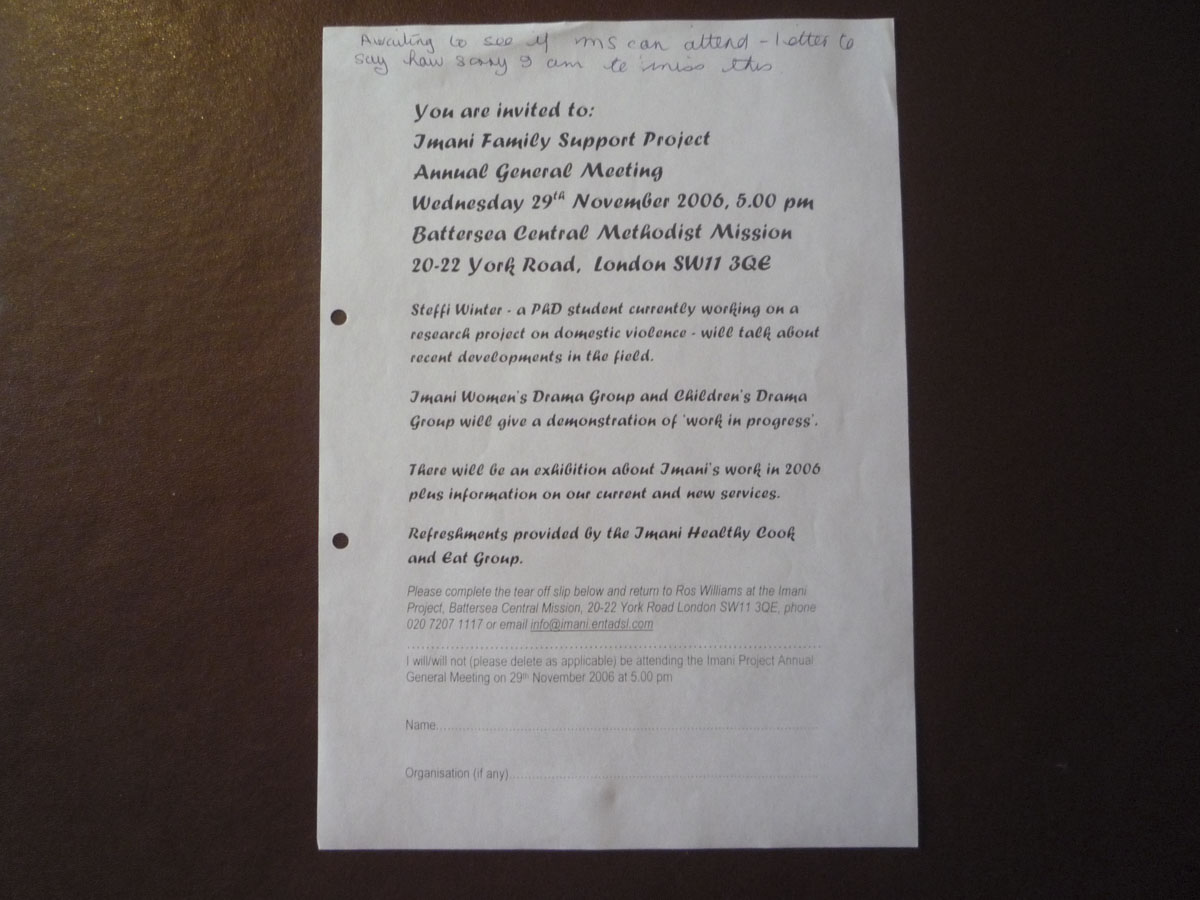 Awaiting to see if MS can attend - Letter to
say how sorry I am to miss this
You are invited to:
Imani Family Support Project
Annual General Meeting
Wednesday 29th November 2006, 5.00 pm
Battersea Central Methodist Mission
20-22 York Road, London SW11 3QE
Steffi Winter - a PhD student currently working on a
research project on domestic violence - will talk about
recent developments in the field.
Imani Women's Drama Group and Children's Drama
Group will give a demonstration of 'work in progress'.
There will be an exhibition about Imani's work in 2006
plus information on our current and new services.
Refreshments provided by the Imani Healthy Cook
and Eat Group.
Please complete the tear off slip below and return to Ros Williams at the Imani
Project, Battersea Central Mission, 20-22 York Road London SW11 3QE, phone
020 7207 1117 or email info@imani.entadsl.com
I will/will not (please delete as applicable) be attending the Imani Project Annual
General Meeting on 29th November 2006 at 5.00 pm
Name
Organisation (if any)